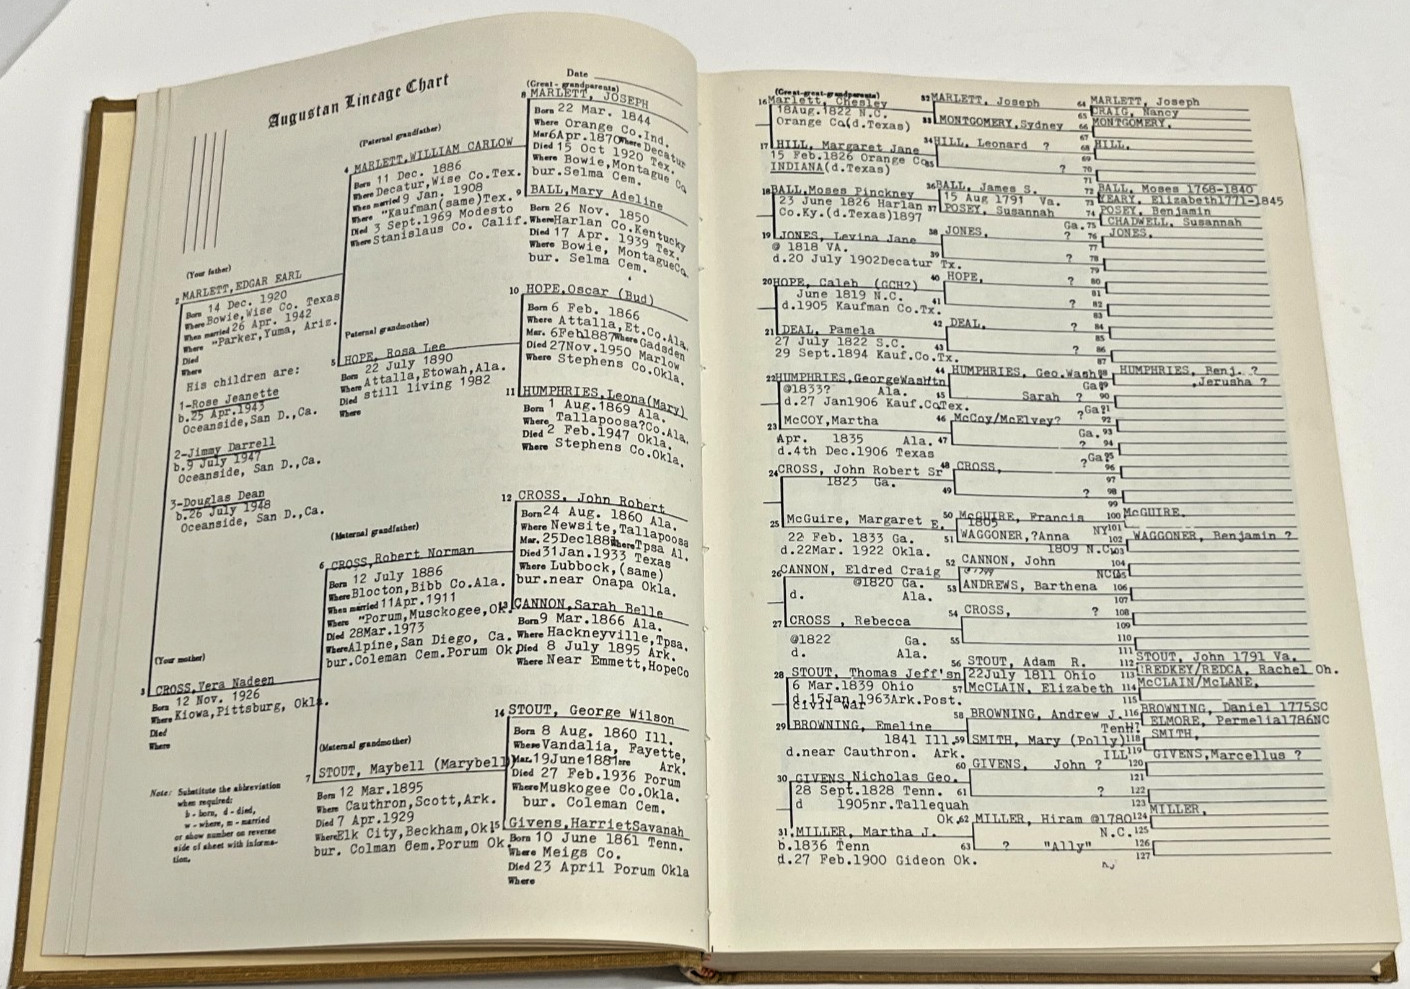 Augustan Lineage Chart
Date
(Your father)
2 MARLETT, EDGAR EARL
Born 14 Dec. 1920
Where Bowie, Wise Co. Texas
When married 26 Apr. 1942
Where "Parker, Yuma, Ariz.
Died
Where
His children are:
1-Rose Jeanette
b.25 Apr.1943
Oceanside,San D.,Ca.
2-Jimmy Darrell
b.9 July 1947
Oceanside, San D.,Ca.
3-Douglas Dean
b.26 July 1948
Oceanside, San D.,Ca.
(Your mother)
3 CROSS,Vera Nadeen
Born 12 Nov. 1926
Where Kiowa,Pittsburg, Okla.
Died
Where
Note: Substitute the abbreviation
when required:
b - born, d - died,
w - where, m - married
or show number on reverse
side of sheet with informa-
tion.
(Paternal grandfather)
4 MARLETT,WILLIAM CARLOW
Born 11 Dec. 1886
Where Decatur,Wise Co.Tex.
When married 9 Jan. 1908
Where "Kaufman(same)Tex.
Died 3 Sept.1969 Modesto
Where Stanislaus Co. Calif.
(Paternal grandmother)
5 HOPE, Rosa Lee
Born 22 July 1890
Where Attalla,Etowah,Ala.
Died still living 1982
Where
(Maternal grandfather)
6 CROSS,Robert Norman
Born 12 July 1886
Where Blocton,Bibb Co.Ala.
When married 11Apr.1911
Where "Porum,Muscogee,Ok.
Died 28Mar.1973
Where Alpine,San Diego, Ca.
bur.Coleman Cem.Porum Ok
(Maternal grandmother)
7 STOUT, Maybell (Marybell)
Born 12 Mar.1895
Where Cauthron,Scott,Ark.
Died 7 Apr.1929
Where Elk City,Beckham,Ok
bur. Colman Cem.Porum Ok.
(Great-grandparents)
8 MARLETT, JOSEPH
Born 22 Mar. 1844
Where Orange Co.Ind.
Mar 6Apr.1870 Where Decatur
Died 15 Oct 1920 Tex.
Where Bowie,Montague Co
bur.Selma Cem.
9 BALL,Mary Adeline
Born 26 Nov. 1850
Where Harlan Co.Kentucky
Died 17 Apr. 1939 Tex.
Where Bowie, MontagueCo.
bur. Selma Cem.
10 HOPE,Oscar (Bud)
Born 6 Feb. 1866
Where Attalla,Et.Co.Ala.
Mar. 6Feb1887 Where Gadsden
Died 27Nov.1950 Marlow
Where Stephens Co.Okla.
11 HUMPHRIES,Leona(Mary)
Born 1 Aug.1869 Ala.
Where Tallapoosa?Co.Ala.
Died 2 Feb.1947 Okla.
Where Stephens Co.Okla.
12 CROSS, John Robert
Born 24 Aug. 1860 Ala.
Where Newsite,Tallapoosa
Mar. 25Dec188 Where Tpsa Al.
Died 31Jan.1933 Texas
Where Lubbock,(same)
bur.near Onapa Okla.
13 CANNON,Sarah Belle
Born 9 Mar.1866 Ala.
Where Hackneyville,Tpsa.
Died 8 July 1895 Ark.
Where Near Emmett,HopeCo
14 STOUT, George Wilson
Born 8 Aug. 1860 Ill.
Where Vandalia, Fayette,
Mar. 19June1881 Where Ark.
Died 27 Feb.1936 Porum
Where Muskogee Co.Okla.
bur. Coleman Cem.
15 Givens,HarrietSavanah
Born 10 June 1861 Tenn.
Where Meigs Co.
Died 23 April Porum Okla
Where
(Great-great-grandparents)
16 Marlett, Chesley
18Aug.1822 N.C.
Orange Co(d.Texas)
17 HILL, Margaret Jane
15 Feb.1826 Orange Co
INDIANA(d.Texas)
18 BALL,Moses Pinckney
23 June 1826 Harlan
Co.Ky.(d.Texas)1897
19 JONES, Levina Jane
@ 1818 VA.
d.20 July 1902Decatur Tx.
20 HOPE, Caleb (GCH?)
June 1819 N.C.
d.1905 Kaufman Co.Tx.
21 DEAL, Pamela
27 July 1822 S.C.
29 Sept.1894 Kauf.Co.Tx.
22 HUMPHRIES,GeorgeWashtn
@1833? Ala.
d.27 Jan1906 Kauf.CoTex.
23 McCOY,Martha
Apr. 1835 Ala.
d.4th Dec.1906 Texas
24 CROSS, John Robert Sr
1823 Ga.
25 McGuire, Margaret E.
22 Feb. 1833 Ga.
d.22Mar. 1922 Okla.
26 CANNON, Eldred Craig
@1820 Ga.
d. Ala.
27 CROSS , Rebecca
@1822 Ga.
d. Ala.
28 STOUT, Thomas Jeff'sn
6 Mar.1839 Ohio
d.15Jan.1963Ark.Post.
Civil War
29 BROWNING, Emeline
1841 Ill.
d.near Cauthron. Ark.
30 GIVENS Nicholas Geo.
28 Sept.1828 Tenn.
d 1905nr.Tallequah
Ok.
31 MILLER, Martha J.
b.1836 Tenn
d.27 Feb.1900 Gideon Ok.
32 MARLETT, Joseph
33 MONTGOMERY,Sydney
34 HILL, Leonard ?
35 ?
36 BALL, James S.
15 Aug 1791 Va.
37 POSEY, Susannah
Ga.
38 JONES, ?
39 ?
40 HOPE, ?
41 ?
42 DEAL, ?
43 ?
44 HUMPHRIES, Geo.Wash
Ga
45 Sarah ?
?Ga
46 McCoy/McElvey?
Ga.
47 ?
?Ga
48 CROSS,
49 ?
50 McGUIRE, Francis
1805 NY
51 WAGGONER,?Anna
1809 N.C.
52 CANNON, John
NC
53 ANDREWS, Barthena
54 CROSS, ?
55
56 STOUT, Adam R.
22July 1811 Ohio
57 McCLAIN, Elizabeth
58 BROWNING, Andrew J.
Tenn
59 SMITH, Mary (Polly)
ILL
60 GIVENS, John ?
61 ?
62 MILLER, Hiram @1780
N.C.
63 ? "Ally"
64 MARLETT, Joseph
65 CRAIG, Nancy
66 MONTGOMERY,
67
68 HILL,
69
70
71
72 BALL, Moses 1768-1840
73 YEARY, Elizabeth1771-1845
74 POSEY, Benjamin
75 CHADWELL, Susannah
76 JONES,
77
78
79
80
81
82
83
84
85
86
87
88 HUMPHRIES, Benj. ?
89 ,Jerusha ?
90
91
92
93
94
95
96
97
98
99
100 McGUIRE,
101
102 WAGGONER, Benjamin ?
103
104
105
106
107
108
109
110
111
112 STOUT, John 1791 Va.
113 REDKEY/REDCA, Rachel Oh.
114 McCLAIN/McLANE,
115
116 BROWNING, Daniel 1775SC
117 ELMORE, Permelia1786NC
118 SMITH,
119 GIVENS,Marcellus ?
120
121
122
123
124 MILLER,
125
126
127